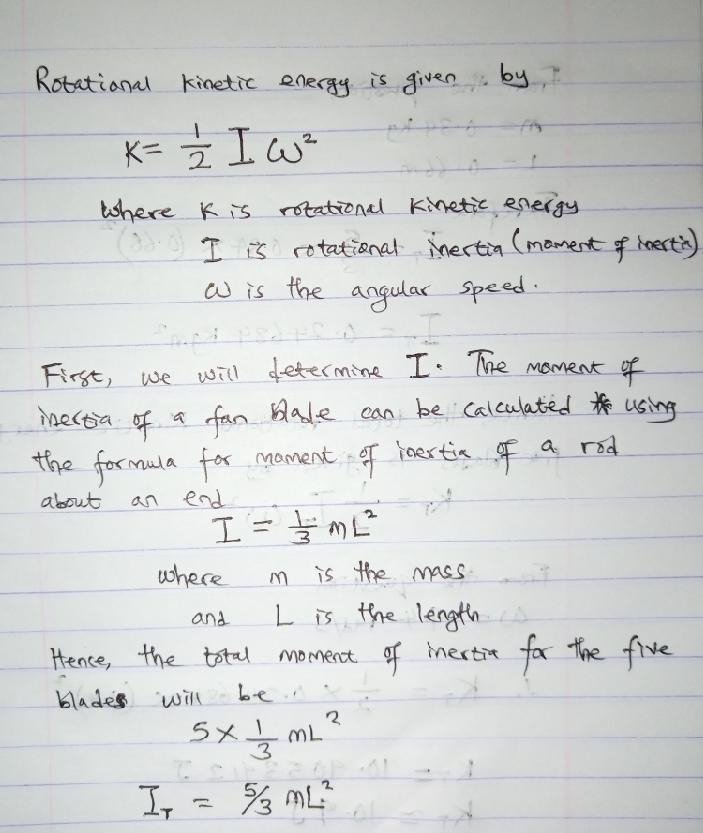 Rotational kinetic energy is given by,
K = 1/2 I ω²
where K is rotational kinetic energy
I is rotational inertia (moment of inertia)
ω is the angular speed.
First, we will determine I. The moment of
inertia of a fan blade can be calculated using
the formula for moment of inertia of a rod
about an end
I = 1/3 mL²
where m is the mass
and L is the length
Hence, the total moment of inertia for the five
blades will be
5 × 1/3 mL²
I_T = 5/3 mL²